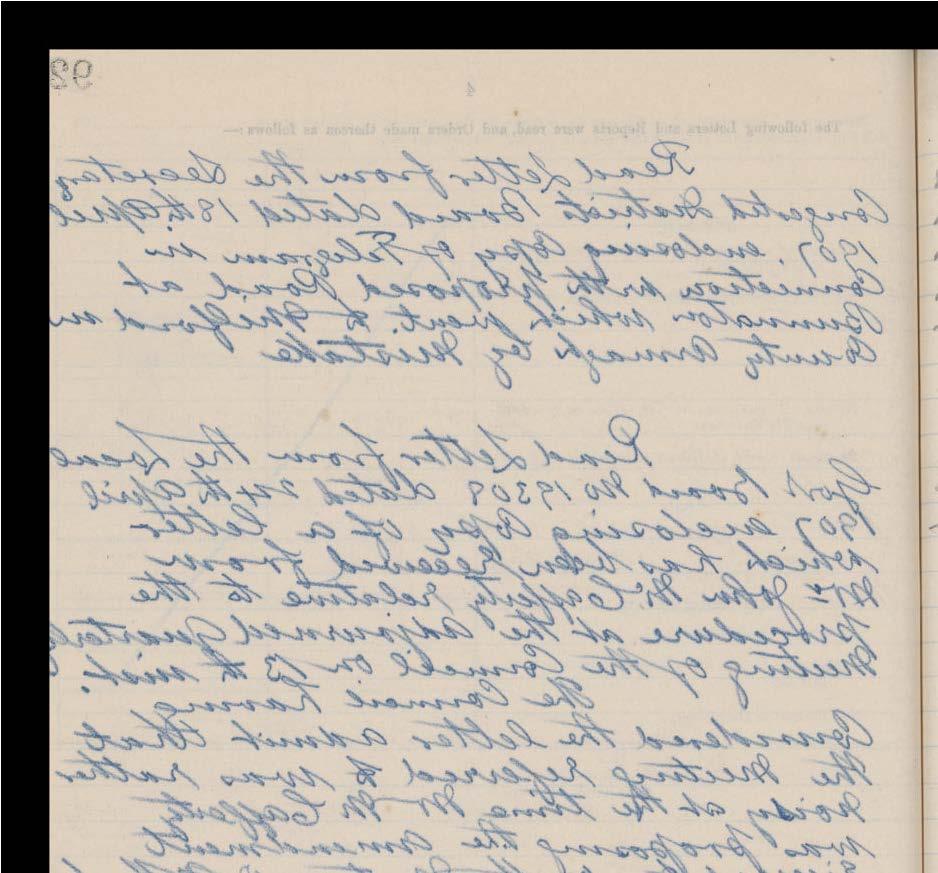 92
4
The following Letters and Reports were read, and Orders made thereon as follows:—
Read Letter from the Secretary
Congested Districts Board dated 18th April
1907, enclosing Copy of Telegram in
Connection with proposed Road at
which went to Milford in
County Armagh by Mistake
Read Letter from the Local
Govt Board No 19308 dated 24th April
1907 enclosing Copy of a letter
which has been received from
Mr John McCafferty relative to the
procedure at the adjourned Quarterly
Meeting of the Council on 13th inst.
The Council having
Considered the letter admit that
the Meeting referred to was rather
noisy at the time Mr McCafferty
was proposing the amendment